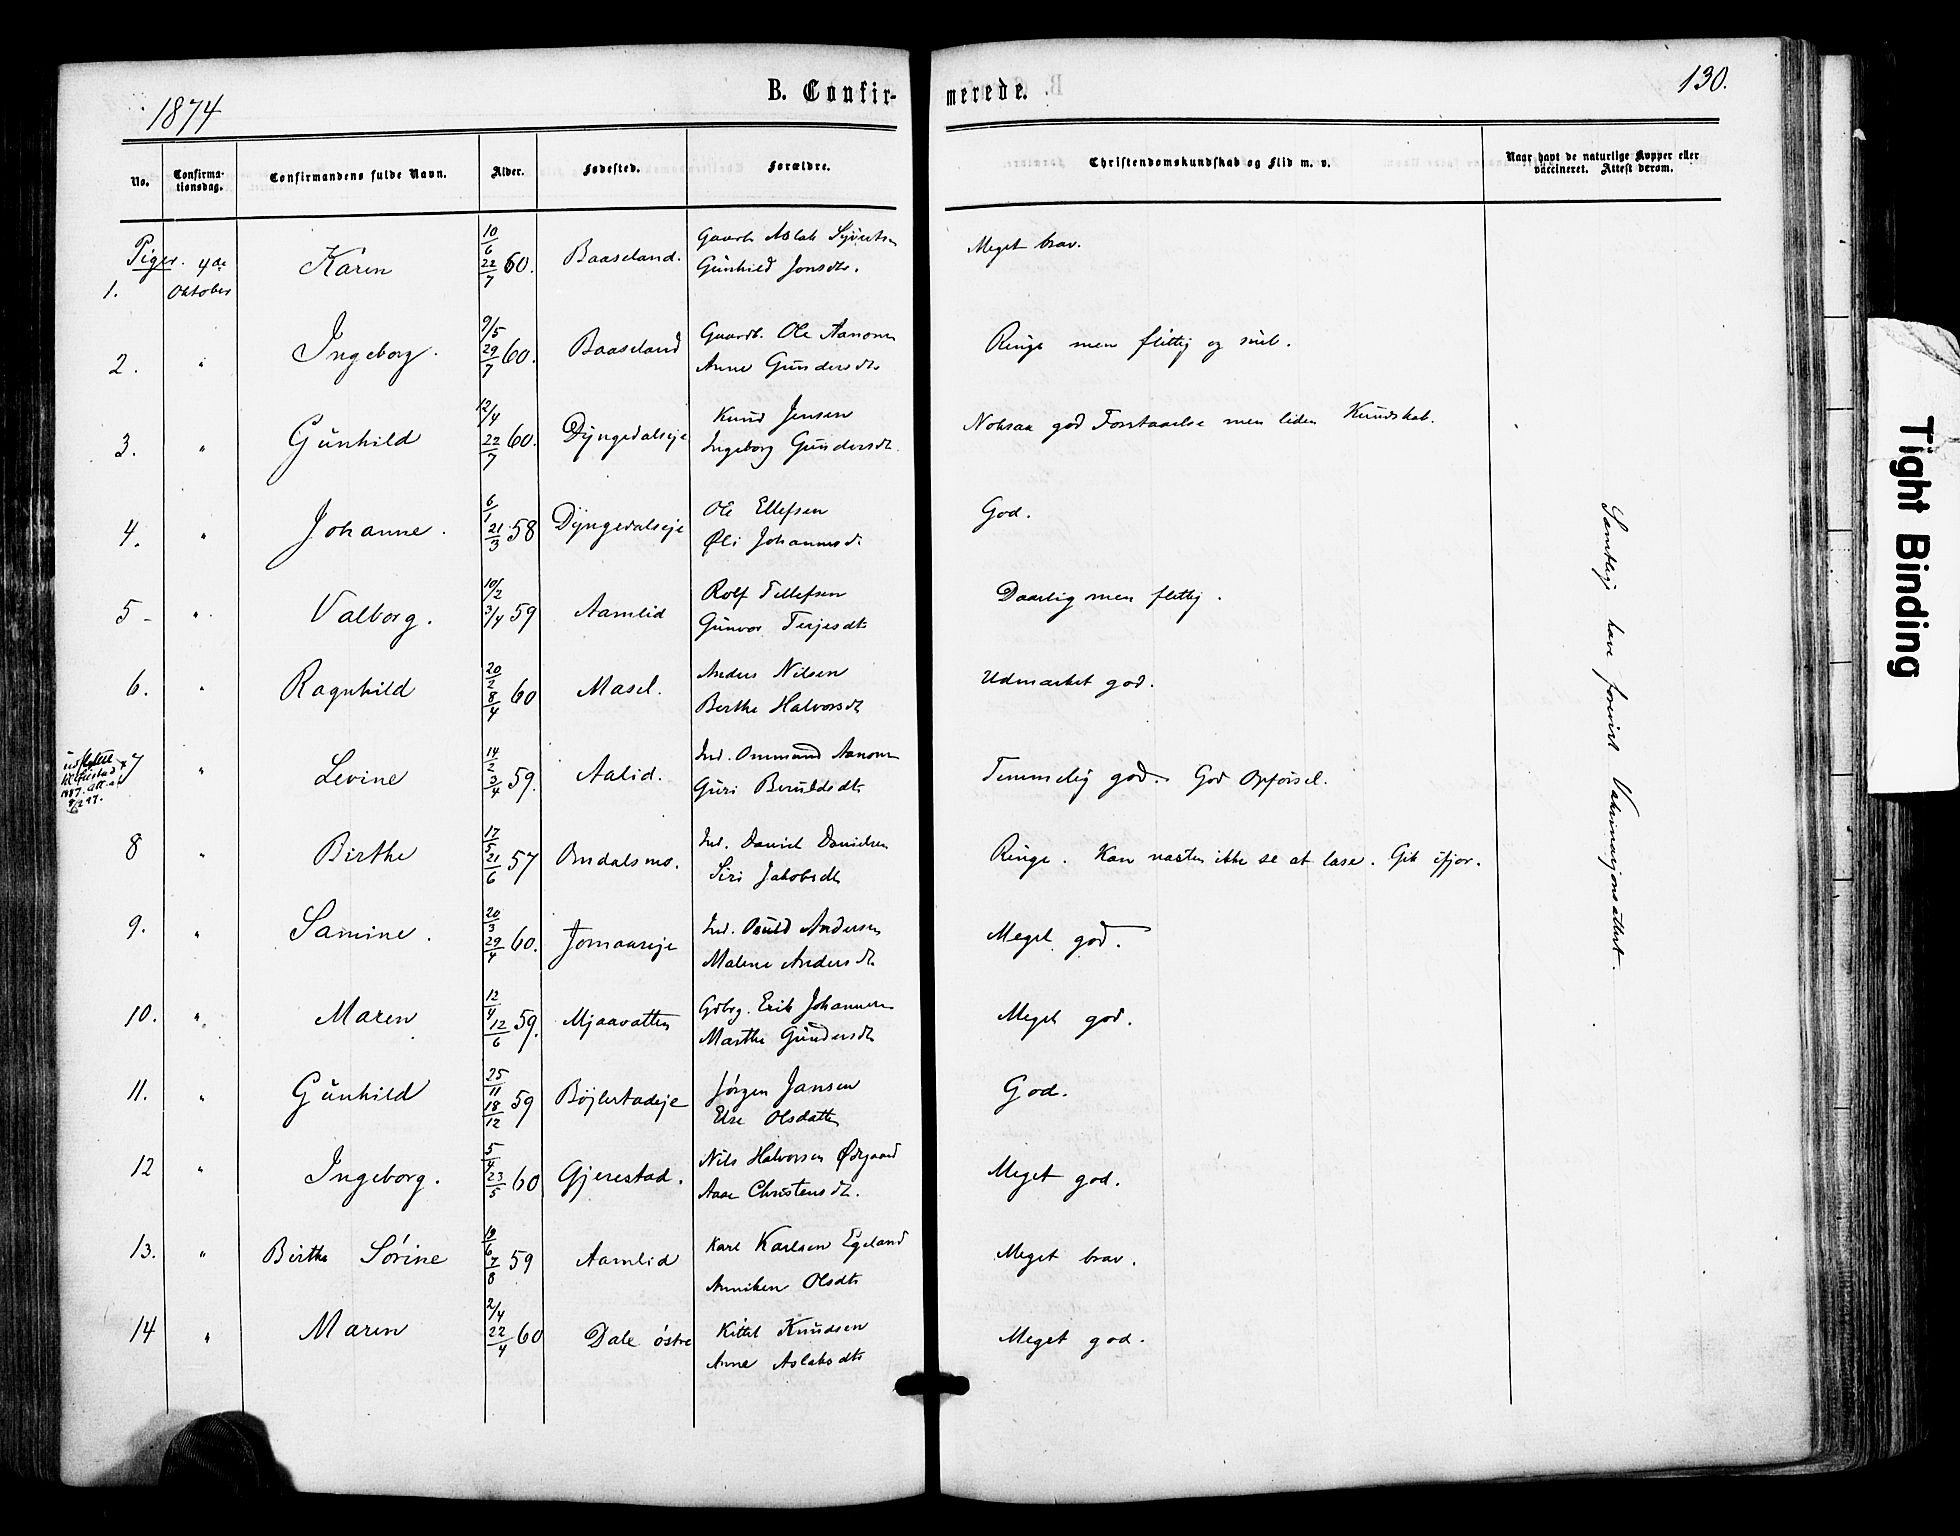 1874
B. Confir-
merede.
130.
No.
Confirma-
tionsdag.
Confirmandens fulde Navn.
Alder.
Fødested.
Forældre.
Christendomskundskab og Flid m. v.
Naar havt de naturlige Kopper eller
vaccineret. Attest derom.
Piger.
1. 4de Oktober Karen 10/6 22/7 60. Baaseland. Gaardb. Aslak Syvertsn
Gunhild Jonsdtr. Meget brav.
2. " Ingeborg. 9/5 29/7 60. Baaseland Gaardb. Ole Aanonsn
Anne Gundersdtr Ringe men flittig og snil.
3. " Gunhild 12/4 22/7 60. Dyngedalseje Knud Jensen
Ingeborg Gundersdt. Noksaa god Forstaaelse men liden Kundskab.
4. " Johanne. 6/1 21/3 58 Dyngedalseje Ole Ellefsen
Øli Johannesdt. God.
5 - " Valborg. 10/2 3/4 59 Aamlid Rolf Tellefsen
Gunvor Terjesdtr Daarlig men flittig.
6. " Ragnhild 20/2 8/4 60 Masel. Anders Nilsen
Berthe Halvorsdtr Udmærket god.
7 " Levine 14/2 3/4 59. Aalid. Ind. Ommund Aanonsn
Guri Beruldsdtr Temmelig god. God Opførsel.
8 " Birthe 17/5 21/6 57 Omdalsmo. Ind. Daniel Danielsen
Siri Jakobsdtr Ringe. Kan næsten ikke se at læse. Gik ifjor.
9. " Samine. 20/3 29/4 60. Jomaaseje Ind. Osuld Andersen
Malene Andersdtr Meget god.
10. " Maren 12/4 12/6 59. Mjaavatten Gdbrg. Erik Johannesn
Marthe Gundersdtr Meget god.
11. " Gunhild 25/11 18/12 59 Bøjlestadeje Jørgen Jansen
Else Olsdatter God.
12 " Ingeborg. 5/4 23/5 60 Gjerestad. Nils Halvorsen Ødegaard
Aase Christensdtr. Meget god.
13. " Birthe Sørine 19/6 7/8 59 Aamlid Karl Karlsen Egeland
Anniken Olsdtr Meget brav.
14 " Maren 2/4 22/4 60 Dale østre Kittel Knudsen
Anne Aslaksdtr Meget god.
Samtlige have forevist Vakcinasjonsattest.
Tight Binding